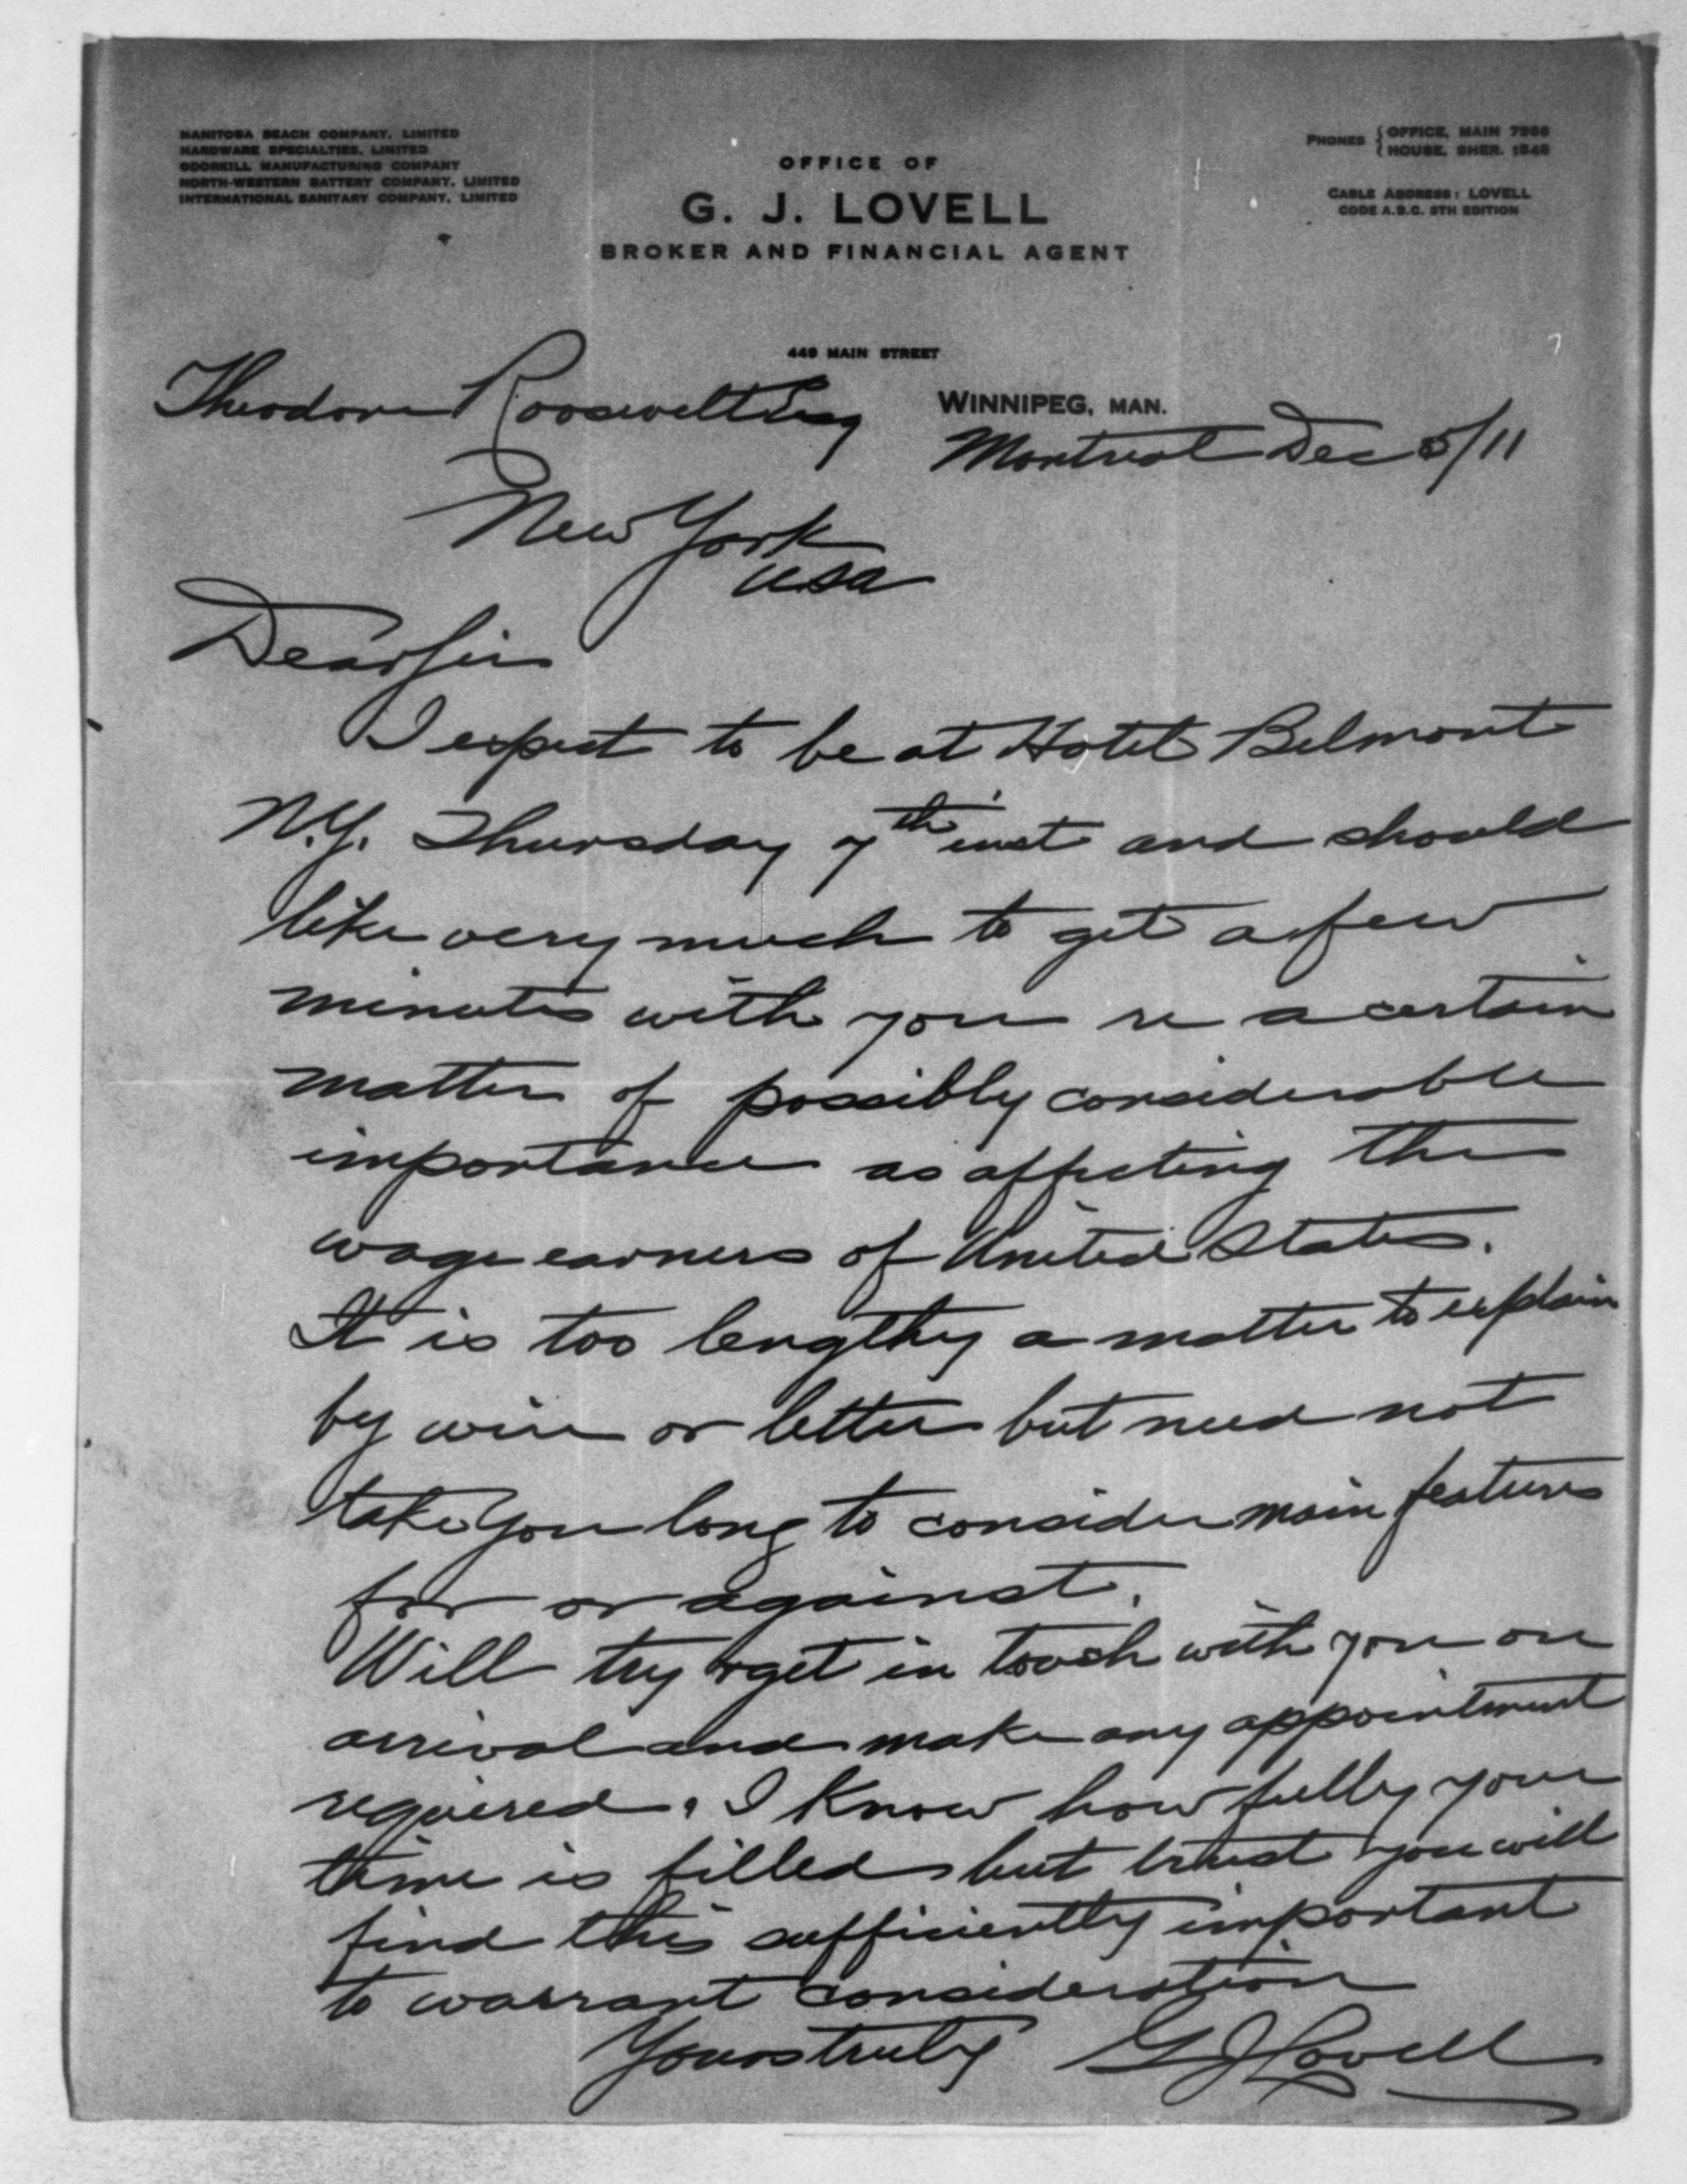 MANITOBA BEACH COMPANY, LIMITED
HARDWARE SPECIALTIES, LIMITED
ODORKILL MANUFACTURING COMPANY
NORTH-WESTERN BATTERY COMPANY, LIMITED
INTERNATIONAL SANITARY COMPANY, LIMITED
OFFICE OF
G. J. LOVELL
BROKER AND FINANCIAL AGENT
PHONES { OFFICE, MAIN 7966
HOUSE, SHER. 1548
CABLE ADDRESS: LOVELL
CODE A.B.C. 5TH EDITION
449 MAIN STREET
WINNIPEG, MAN.
Theodore Roosevelt Esq
Montreal Dec 5/11
New York
USA
Dear Sir
I expect to be at Hotel Belmont
N.Y. Thursday 7th inst and should
like very much to get a few
minutes with you re a certain
matter of possibly considerable
importance as affecting the
wage earners of United States.
It is too lengthy a matter to explain
by wire or letter but need not
take you long to consider main features
for or against.
Will try & get in touch with you on
arrival and make any appointment
required. I know how fully your
time is filled but trust you will
find this sufficiently important
to warrant consideration
Yours truly G J Lovell